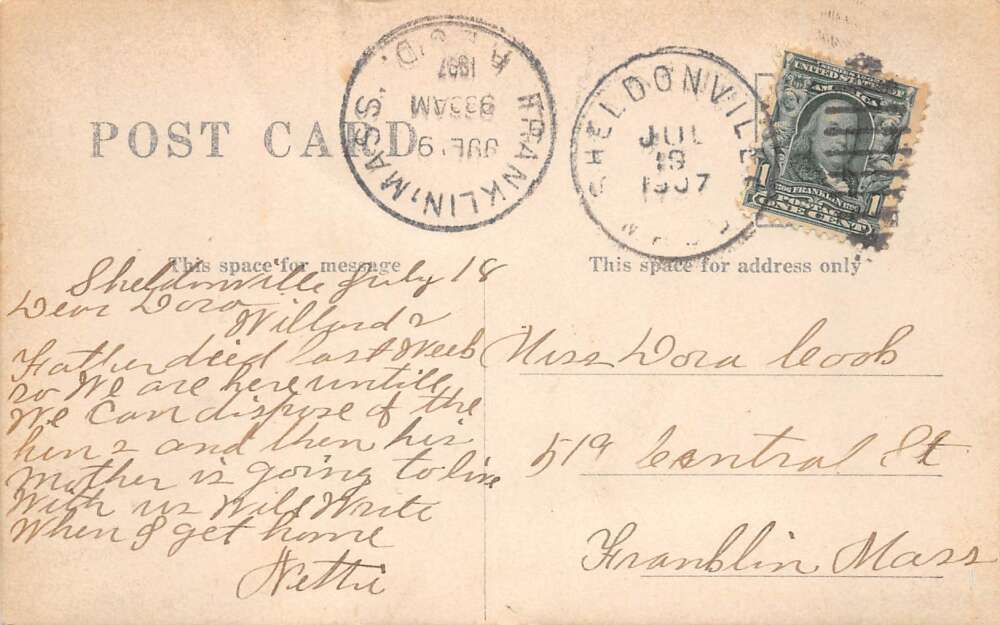 POST CARD
FRANKLIN, MASS.
REC'D.
1907
930AM
JUL 19
SHELDONVILLE
JUL
18
1907
MASS.
SERIES 1902
UNITED STATES OF
AMERICA
1706 FRANKLIN 1790
POSTAGE
1 ONE CENT 1
This space for message
This space for address only
Sheldonville July 18
Dear Dora
Willards
Father died last Week
so We are here untill
We Can dispose of the
hens and then his
Mother is going to live
With us Will Write
When I get home
Nettie
Miss Dora Cook
519 Central St
Franklin Mass